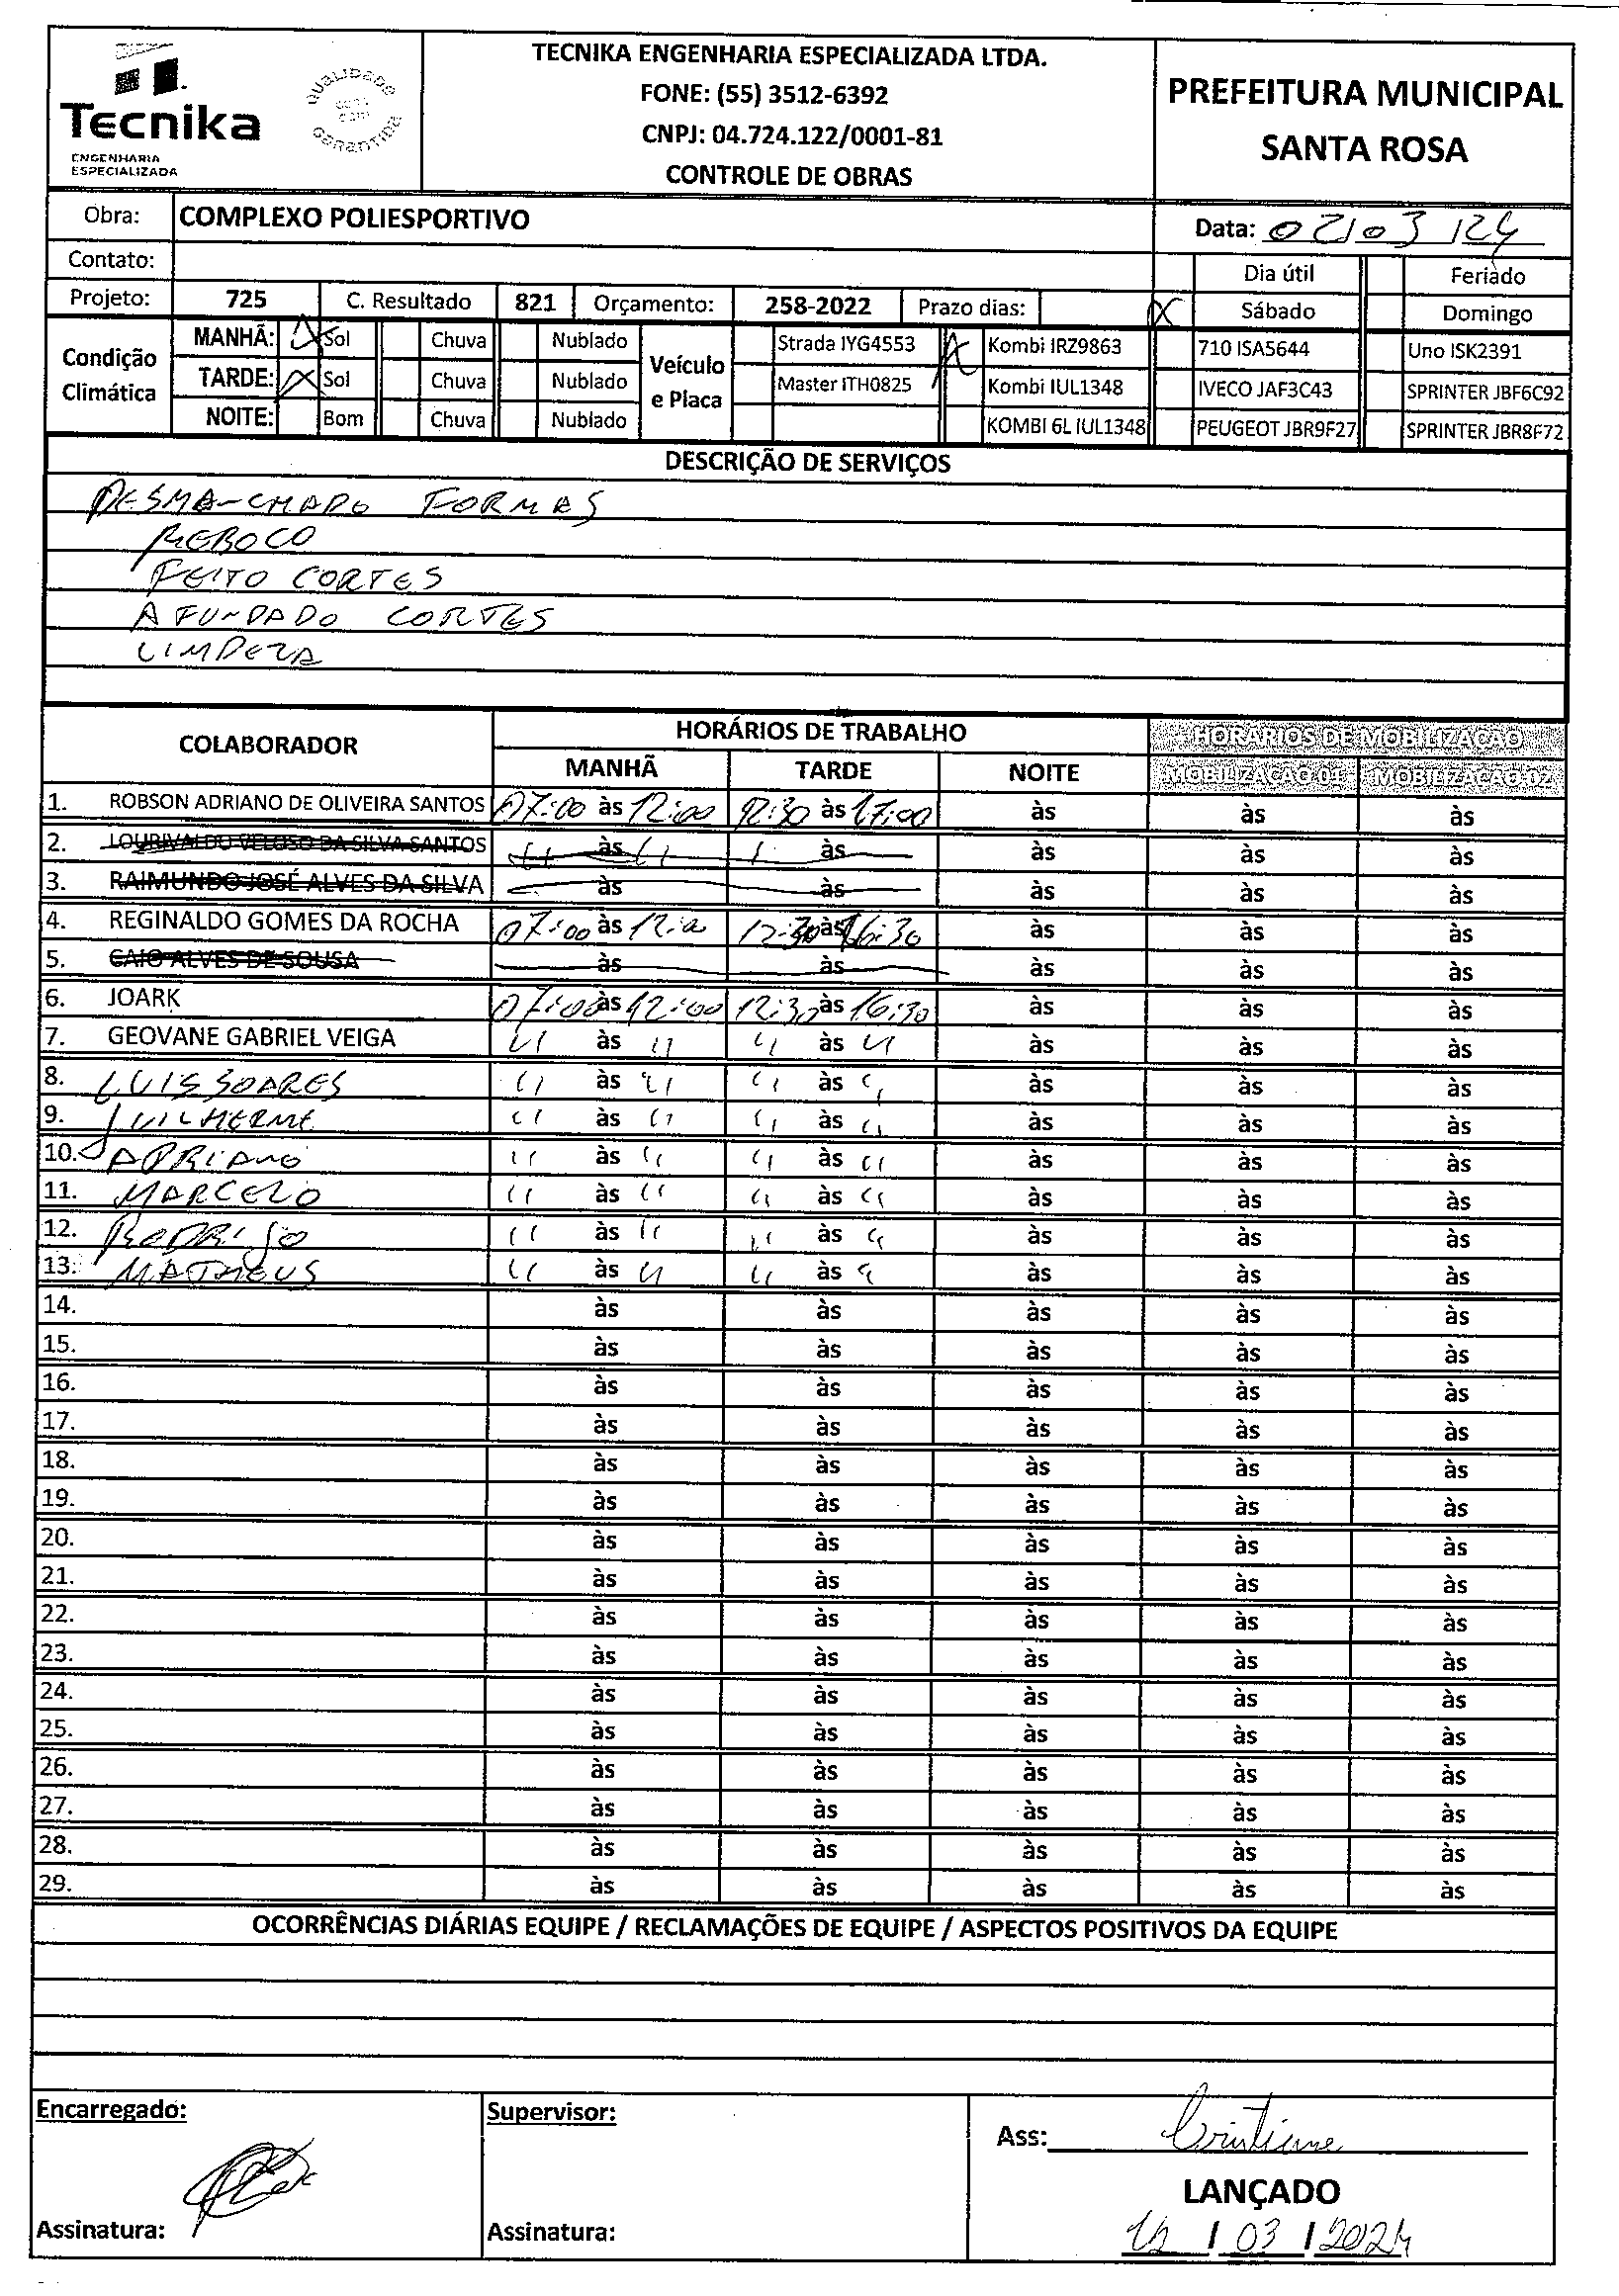 Tecnika
ENGENHARIA
ESPECIALIZADA
QUALIDADE
GARANTIDA
TECNIKA ENGENHARIA ESPECIALIZADA LTDA.
FONE: (55) 3512-6392
CNPJ: 04.724.122/0001-81
CONTROLE DE OBRAS
PREFEITURA MUNICIPAL
SANTA ROSA
Obra: COMPLEXO POLIESPORTIVO Data: 02/03/24
Contato: Dia útil Feriado
Projeto: 725 C. Resultado 821 Orçamento: 258-2022 Prazo dias: X Sábado Domingo
Condição Climática
MANHÃ: X Sol Chuva Nublado
TARDE: X Sol Chuva Nublado
NOITE: Bom Chuva Nublado
Veículo e Placa
Strada IYG4553 X Kombi IRZ9863 710 ISA5644 Uno ISK2391
Master ITH0825 Kombi IUL1348 IVECO JAF3C43 SPRINTER JBF6C92
KOMBI 6L IUL1348 PEUGEOT JBR9F27 SPRINTER JBR8F72
DESCRIÇÃO DE SERVIÇOS
DESMANCHADO FORMAS
REBOCO
FEITO CORTES
AFUNDADO CORTES
LIMPEZA
COLABORADOR HORÁRIOS DE TRABALHO HORÁRIOS DE MOBILIZAÇÃO
MANHÃ TARDE NOITE MOBILIZAÇÃO 01 MOBILIZAÇÃO 02
1. ROBSON ADRIANO DE OLIVEIRA SANTOS 07:00 às 12:00 12:30 às 17:00 às às às
2. LOURIVALDO VELOSO DA SILVA SANTOS às às às às às
3. RAIMUNDO JOSÉ ALVES DA SILVA às às às às às
4. REGINALDO GOMES DA ROCHA 07:00 às 12:00 12:30 às 16:30 às às às
5. CAIO ALVES DE SOUSA às às às às às
6. JOARK 07:00 às 12:00 12:30 às 16:30 às às às
7. GEOVANE GABRIEL VEIGA " às " " às " às às às
8. LUIS SOARES " às " " às " às às às
9. GUILHERME " às " " às " às às às
10. ADRIANO " às " " às " às às às
11. MARCELO " às " " às " às às às
12. RODRIGO " às " " às " às às às
13. MATHEUS " às " " às " às às às
14. às às às às às
15. às às às às às
16. às às às às às
17. às às às às às
18. às às às às às
19. às às às às às
20. às às às às às
21. às às às às às
22. às às às às às
23. às às às às às
24. às às às às às
25. às às às às às
26. às às às às às
27. às às às às às
28. às às às às às
29. às às às às às
OCORRÊNCIAS DIÁRIAS EQUIPE / RECLAMAÇÕES DE EQUIPE / ASPECTOS POSITIVOS DA EQUIPE
Encarregado: Supervisor: Ass: Cristiane
LANÇADO
Assinatura: Assinatura: 12 / 03 / 2024